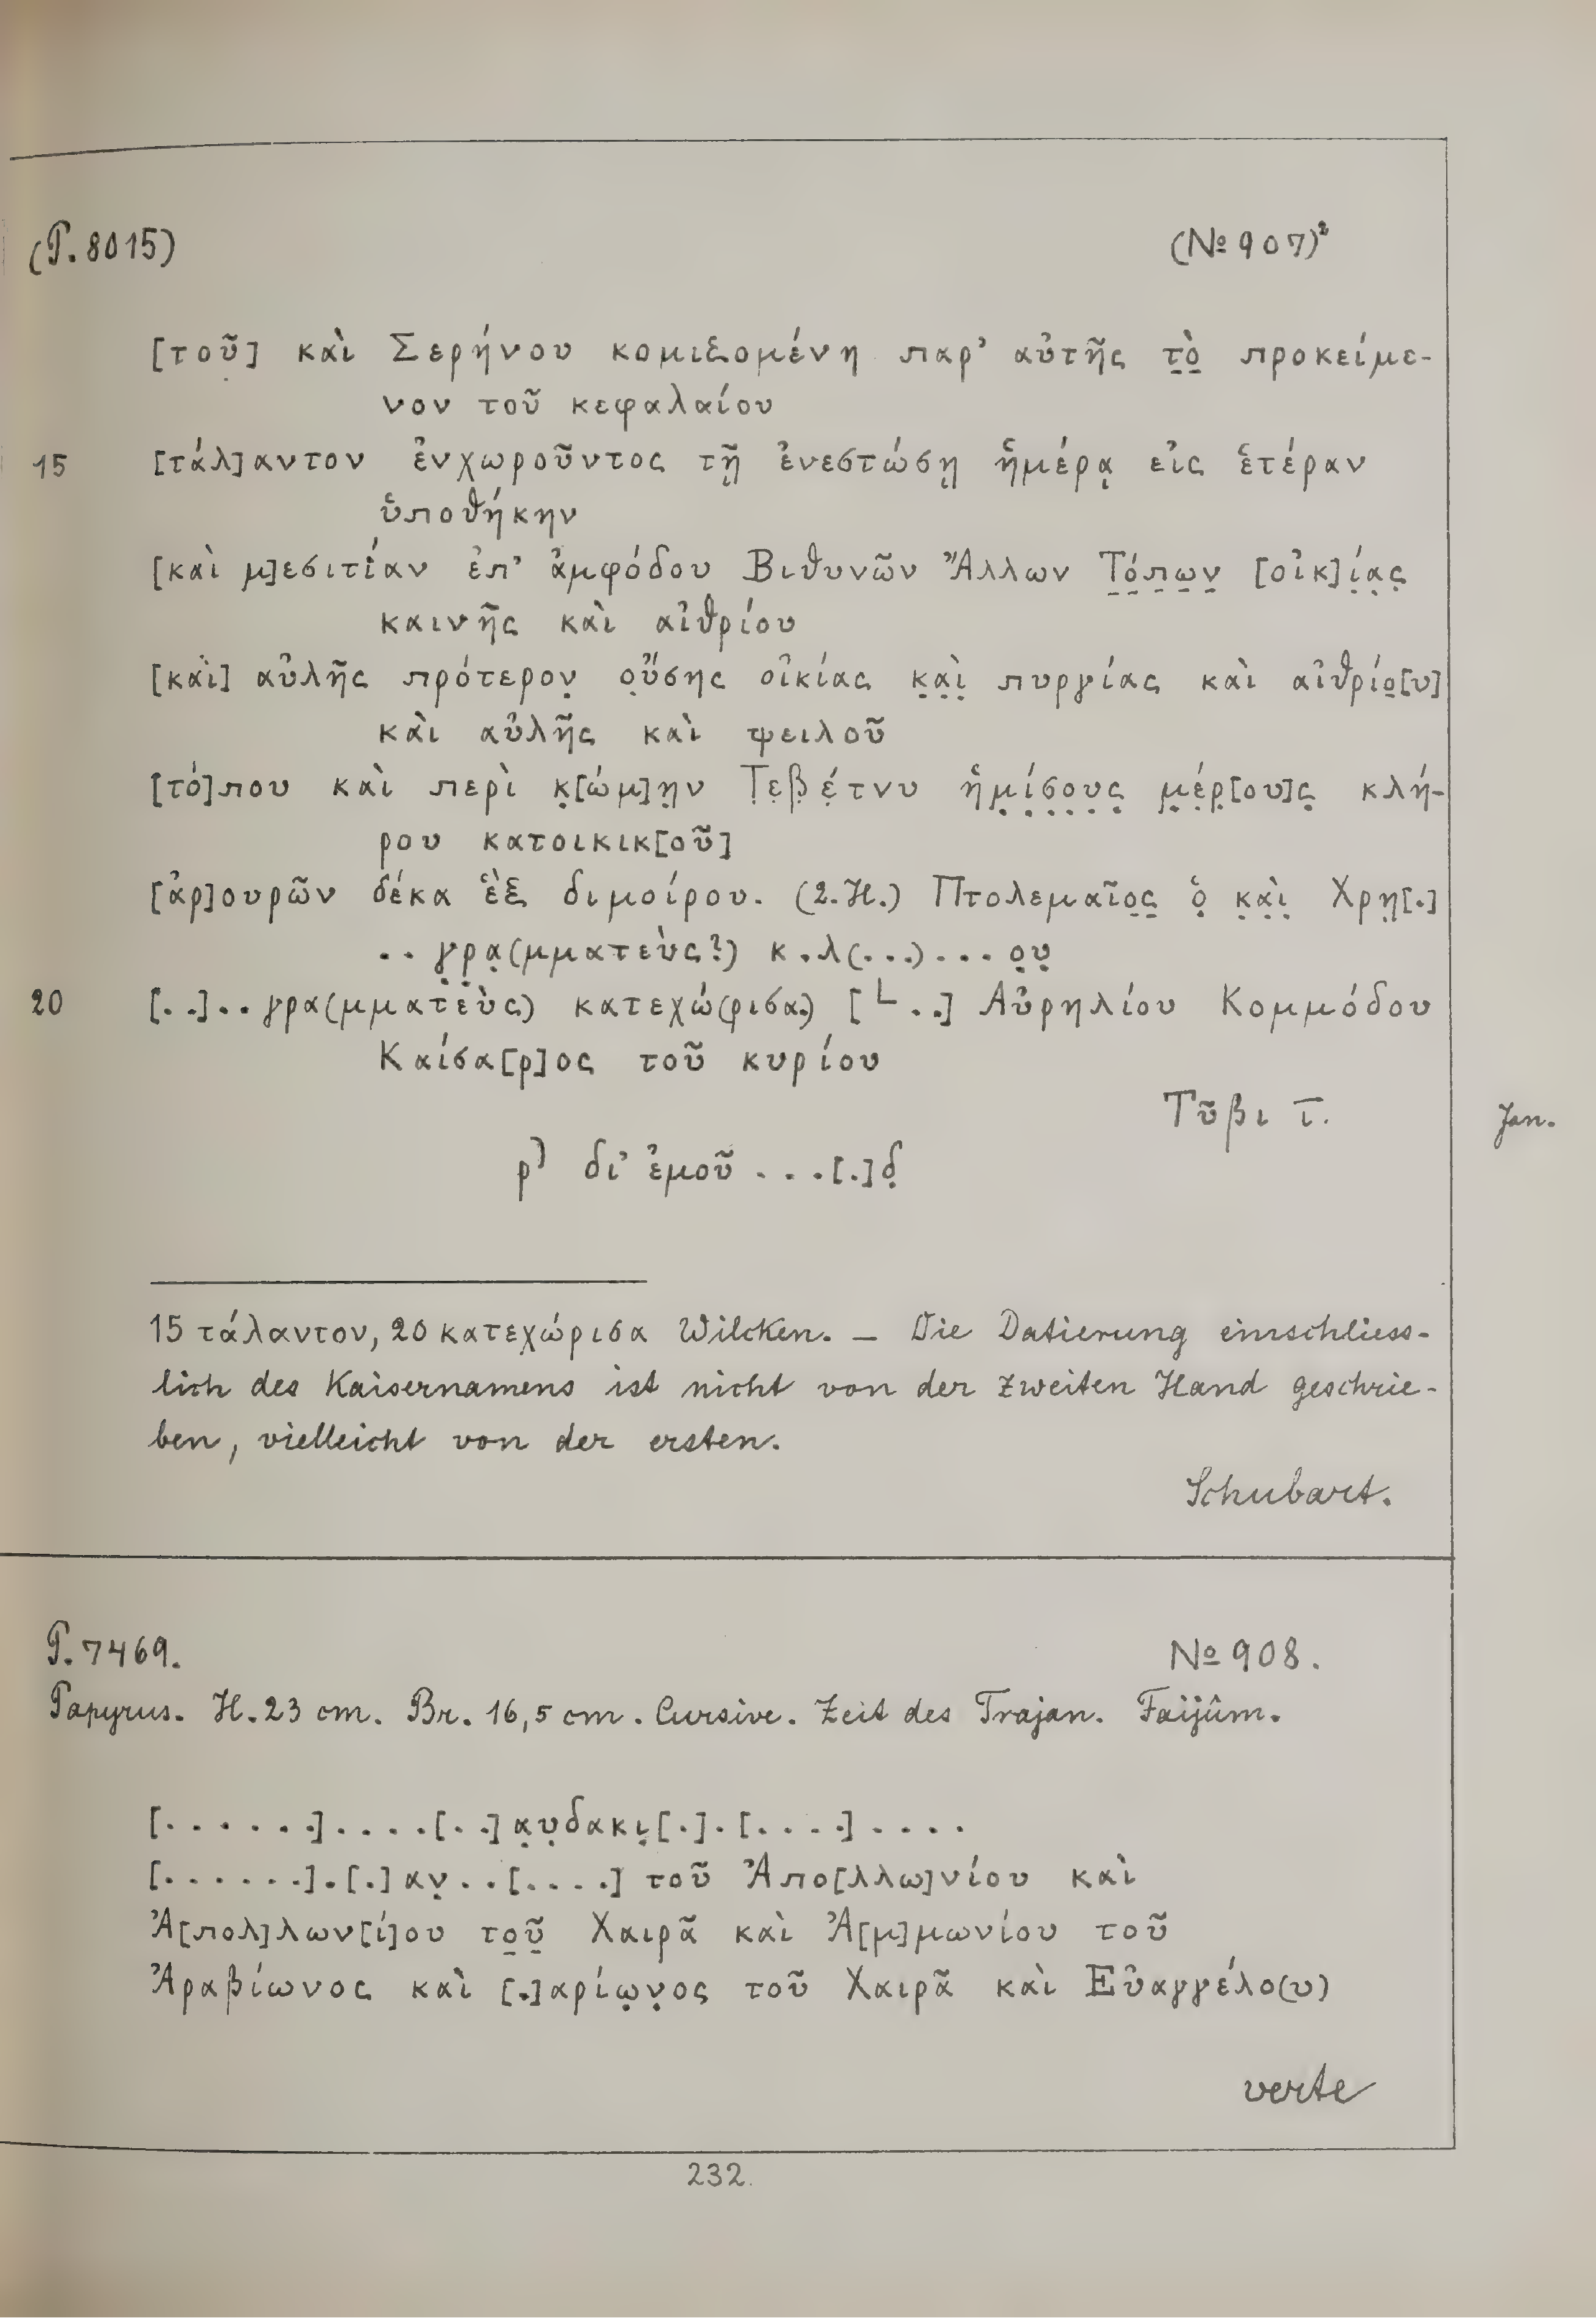 (P. 8015) (№ 907)²
[τοῦ] καὶ Σερήνου κομιξομένη παρ' αὐτῆς τ̣ὸ̣ προκείμε-
νον τοῦ κεφαλαίου
15 [τάλ]αντον ἐνχωροῦντος τῇ ἐνεστώσῃ ἡμέρᾳ εἰς ἑτέραν
ὑποθήκην
[καὶ μ]εσιτίαν ἐπ' ἀμφόδου Βιθυνῶν Ἄλλων Τ̣ό̣π̣ω̣ν̣ [οἰκ]ί̣α̣ς̣
καινῆς καὶ αἰθρίου
[καὶ] αὐλῆς πρότερον̣ ο̣ὔσης οἰκίας κ̣α̣ὶ̣ πυργίας καὶ αἰθρίο̣[υ]
καὶ αὐλῆς καὶ ψειλοῦ
[τό]που καὶ περὶ κ̣[ώμ]η̣ν Τ̣ε̣β̣έ̣τνυ ἡμ̣ί̣σ̣ο̣υ̣ς̣ μ̣έ̣ρ̣[ου]ς̣ κλή-
ρου κατοικικ[οῦ]
[ἀρ]ουρῶν δέκα ἓξ διμοίρου. (2. H.) Πτολεμαῖο̣ς̣ ὁ̣ κ̣α̣ὶ̣ Χρη̣[.]
.. γ̣ρ̣α̣(μματεὺς?) κ.λ(...)... ο̣υ̣
20 [..].. γρα(μματεὺς) κατεχώ(ρισα) [└ ..] Αὐρηλίου Κομμόδου
Καίσα[ρ]ος τοῦ κυρίου
Τῦβι ι̅. Jan.
ρ) δι' ἐμοῦ ...[.]δ̣
15 τάλαντον, 20 κατεχώρισα Wilcken. – Die Datierung einschliess-
lich des Kaisernamens ist nicht von der zweiten Hand geschrie-
ben, vielleicht von der ersten.
Schubart.
P. 7469. № 908.
Papyrus. H. 23 cm. Br. 16,5 cm. Cursive. Zeit des Trajan. Faijûm.
[......]....[..] α̣υ̣δακι̣[.].[....]....
[......].[.] αν̣..[....] τοῦ Ἀπο[λλω]νίου καὶ
Ἀ[πολ]λων[ί]ου το̣ῦ̣ Χαιρᾶ καὶ Ἀ[μ]μωνίου τοῦ
Ἀραβίωνος καὶ [.]αρίω̣ν̣ος τοῦ Χαιρᾶ καὶ Εὐαγγέλο(υ)
verte
232.